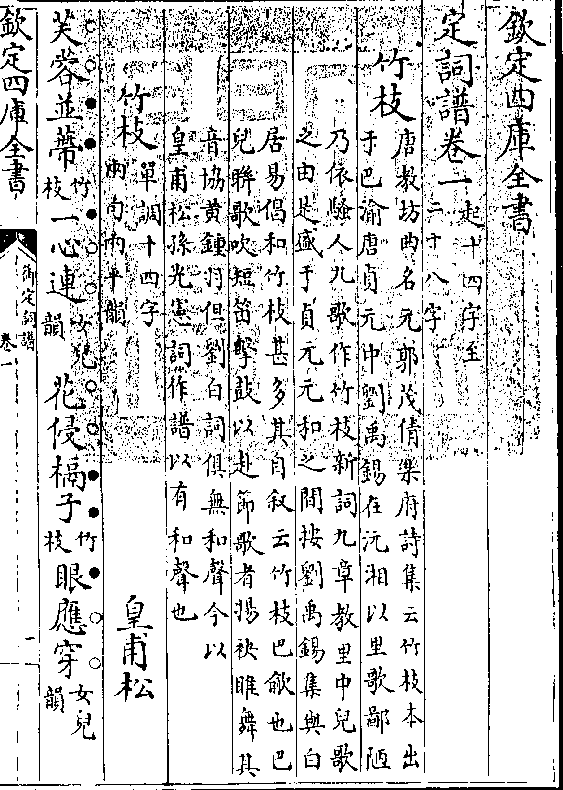 欽定四庫全書
定詞譜卷一 起十四字至
二十八字
竹枝
唐教坊曲名元郭茂倩樂府詩集云竹枝本出
于巴渝唐貞元中劉禹錫在沅湘以里歌鄙陋
乃依騷人九歌作竹枝新詞九章教里中兒歌
之由是盛于貞元元和之間按劉禹錫集與白
居易倡和竹枝甚多其自叙云竹枝巴歈也巴
兒聯歌吹短笛擊鼓以赴節歌者揚袂睢舞其
音協黄鍾羽但劉白詞俱無和聲今以
皇甫松孫光憲詞作譜以有和聲也
竹枝 單調十四字
兩句兩平韻
皇甫松
芙蓉並蔕竹枝一心連女兒韻花侵槅子竹枝眼應穿女兒韻
欽定四庫全書
御定詞譜
卷一
一